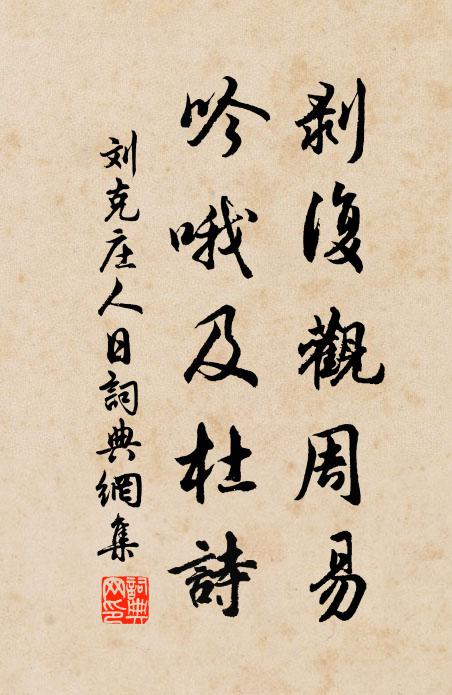 剥復觀周易
吟哦及杜詩
刘克庄人日詞典網集
詞典网印